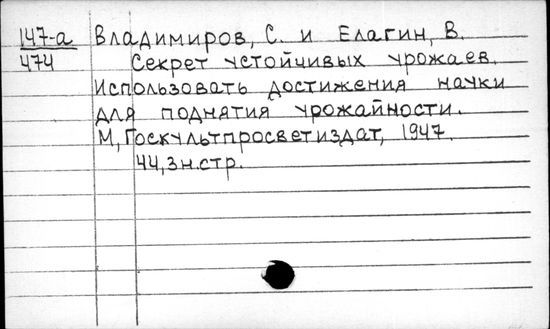 147-а Владимиров, С. и Елагин, В.
474 Секрет устойчивых урожаев.
Использовать достижения науки
для поднятия урожайности.
М, Госкультпросветиздат, 1947.
44,3н.стр.